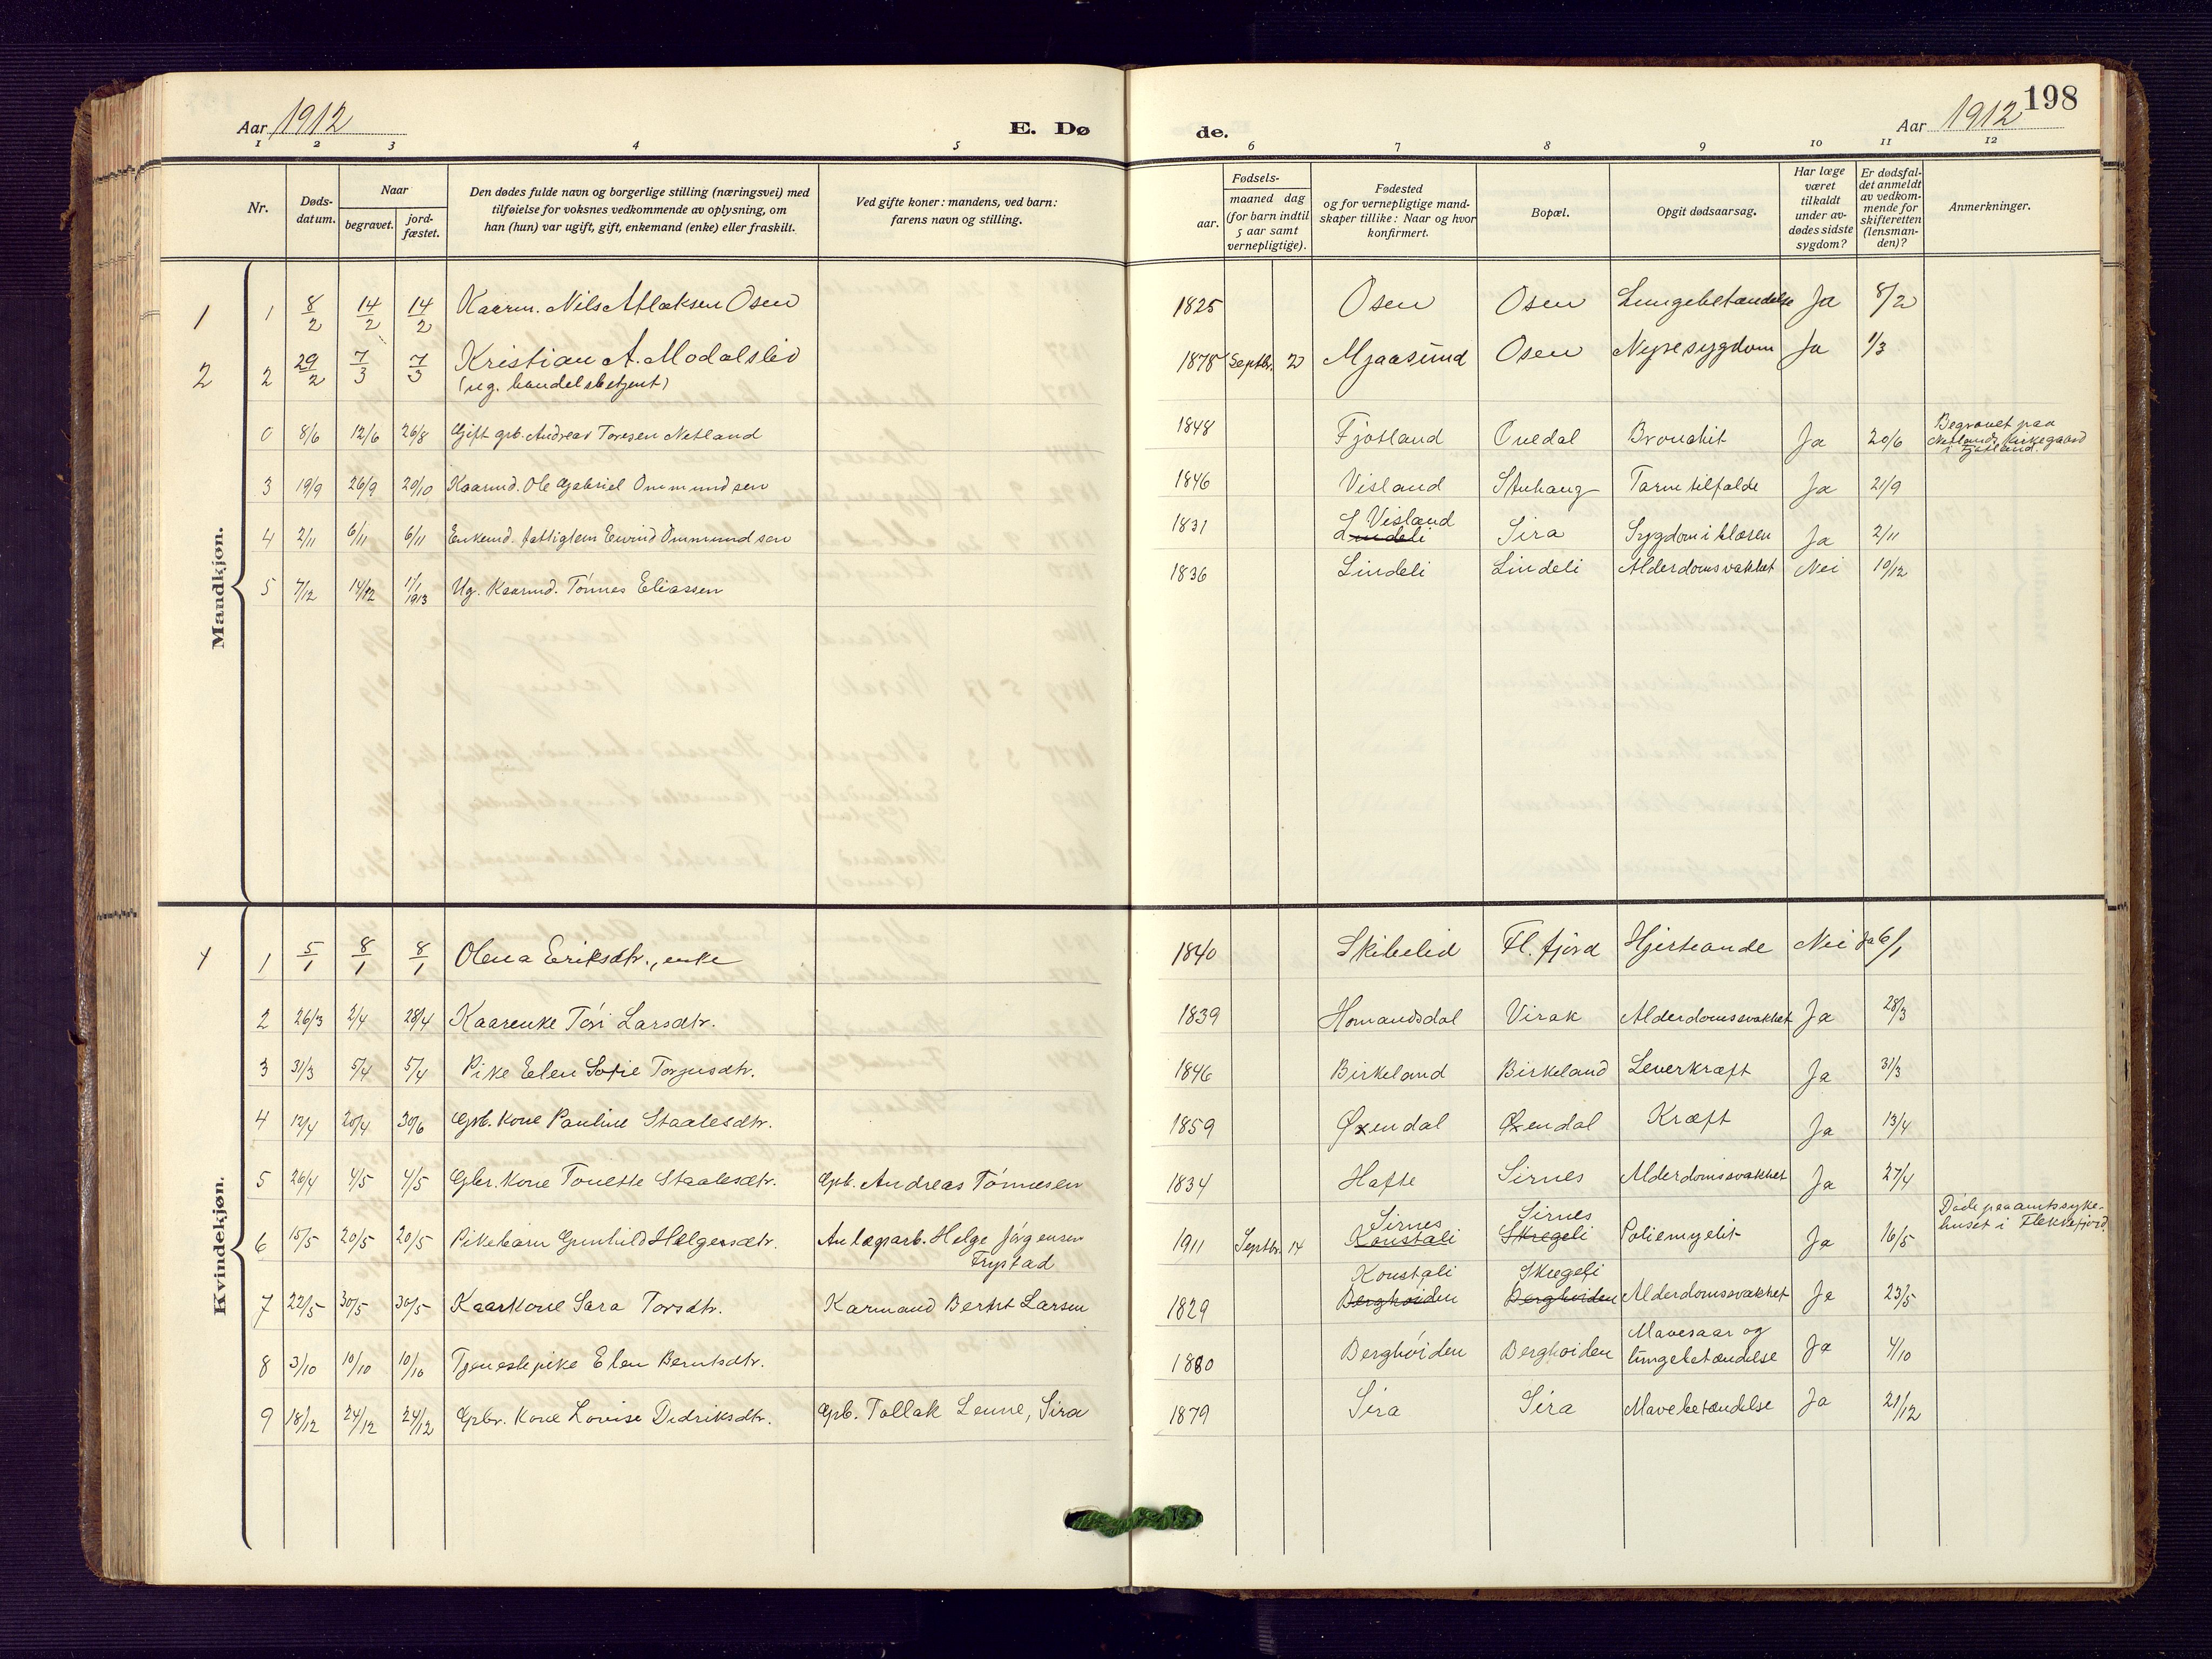 Aar 1912
E. Dø
de.
Aar 1912
198
1 2 3 4 5 6 7 8 9 10 11 12
Nr.
Døds-
datum.
Naar
begravet.
jord-
fæstet.
Den dødes fulde navn og borgerlige stilling (næringsvei) med
tilføielse for voksnes vedkommende av oplysning, om
han (hun) var ugift, gift, enkemand (enke) eller fraskilt.
Ved gifte koner: mandens, ved barn:
farens navn og stilling.
Fødsels-
aar.
maaned dag
(for barn indtil
5 aar samt
vernepligtige).
Fødested
og for vernepligtige mand-
skaper tillike: Naar og hvor
konfirmert.
Bopæl.
Opgit dødsaarsag.
Har læge
været
tilkaldt
under av-
dødes sidste
sygdom?
Er dødsfal-
det anmeldt
av vedkom-
mende for
skifteretten
(lensman-
den)?
Anmerkninger.
Mandkjøn.
1 1 8/2 14/2 14/2 Kaarm. Nils Atlaksen Osen 1825 Osen Osen Lungebetændelse Ja 8/2
2 2 29/2 7/3 7/3 Kristian A. Modalsliv 1878 Septbr. 2 Mjaasund Osen Nyresygdom Ja 1/3
(ug. handelsbetjent)
0 8/6 12/6 26/8 Gift grb. Andreas Toresen Netland 1848 Fjotland Ovedal Bronchit Ja 20/6 Begravet paa
Netlands kirkegaard
i Fjotland.
3 19/9 26/9 20/10 Kaarmd. Ole Gabriel Ommundsen 1846 Visland Stuhaug Tarmtilfælde Ja 21/9
4 2/11 6/11 6/11 Enkemd. fattiglem Eivind Ommundsen 1831 L Visland Sira Sygdom i blæren Ja 2/11
Lindeli
5 7/12 14/12 1/1 1913 Ug. Kaarmd. Tönnes Eliassen 1836 Lindeli Lindeli Alderdomsvakhet Nei 10/12
Kvindekjøn.
1 1 5/1 8/1 8/1 Olena Eriksdtr., enke 1840 Skibelid Fl. fjord Hjerteonde Nei Ja 6/1
2 26/3 2/4 28/4 Kaarenke Töri Larsdtr. 1839 Homandsdal Virak Alderdomssvakhet Ja 28/3
3 31/3 5/4 5/4 Pike Elen Sofie Torjusdtr. 1846 Birkeland Birkeland Leverkræft Ja 31/3
4 12/4 20/4 30/6 Grb. Kone Pauline Staalesdtr. 1859 Øxendal Øxendal Kræft Ja 13/4
5 26/4 4/5 4/5 Gbr. Kone Tonette Staalesdtr. Grb. Andreas Tönnesen 1834 Hafte Sirnes Alderdomssvakhet Ja 27/4
6 15/5 20/5 20/5 Pikebarn Gunhild Helgesdtr. Anlægsarb. Helge Jörgensen 1911 Septbr. 14 Sirnes Sirnes Poliemyelit Ja 16/5 Döde paa amtssyke-
huset i Flekkefjord
Trystad Konstali Skregeli
7 22/5 30/5 30/5 Kaarkone Sara Torsdtr. Karmand Bernt Larsen 1829 Konstali Skregeli Alderdomssvakhet Ja 23/5
Berghöiden Berghöiden
8 3/10 10/10 10/10 Tjenestepike Elen Berntsdtr. 1880 Berghöiden Berghöiden Mavesaar og
lungebetændelse Ja 4/10
9 18/12 24/12 24/12 Grbr. Kone Lovise Didriksdtr. Grb. Tollak Lenne, Sira 1879 Sira Sira Mavebetændelse Ja 21/12